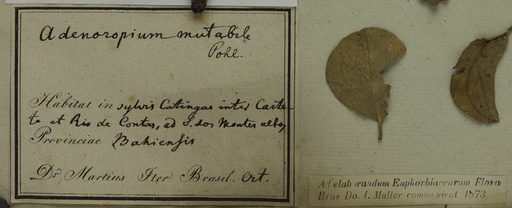 Adenoropium mutabile
Pohl.
Habitat in sylvis Catingas inter Caite-
te et Rio de Contas, ad S. dos Montes altos
Provinciae Bahiensis
Dr. Martius Iter Brasil. Oct.
Ad elaborandum Euphorbiacearum Florae
Bras. Do. J. Müller communicat. 1873